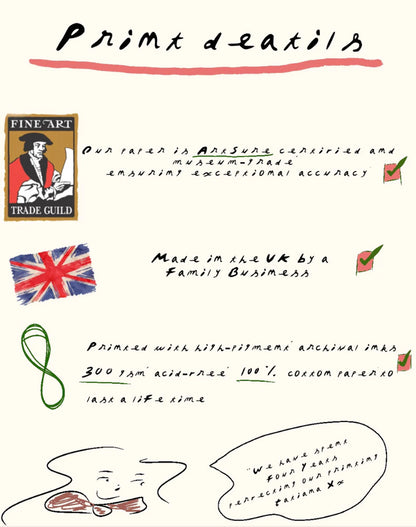 Print deatils
FINE ART
TRADE GUILD
Our paper is ArtSure certified and
museum-grade
ensuring exceptional accuracy
Made in the UK by a
Family Business
Printed with high-pigment archival inks
300 gsm acid-free 100% cotton paper to
last a life time
"We have spent
four years
perfecting our printing
tatiana xx